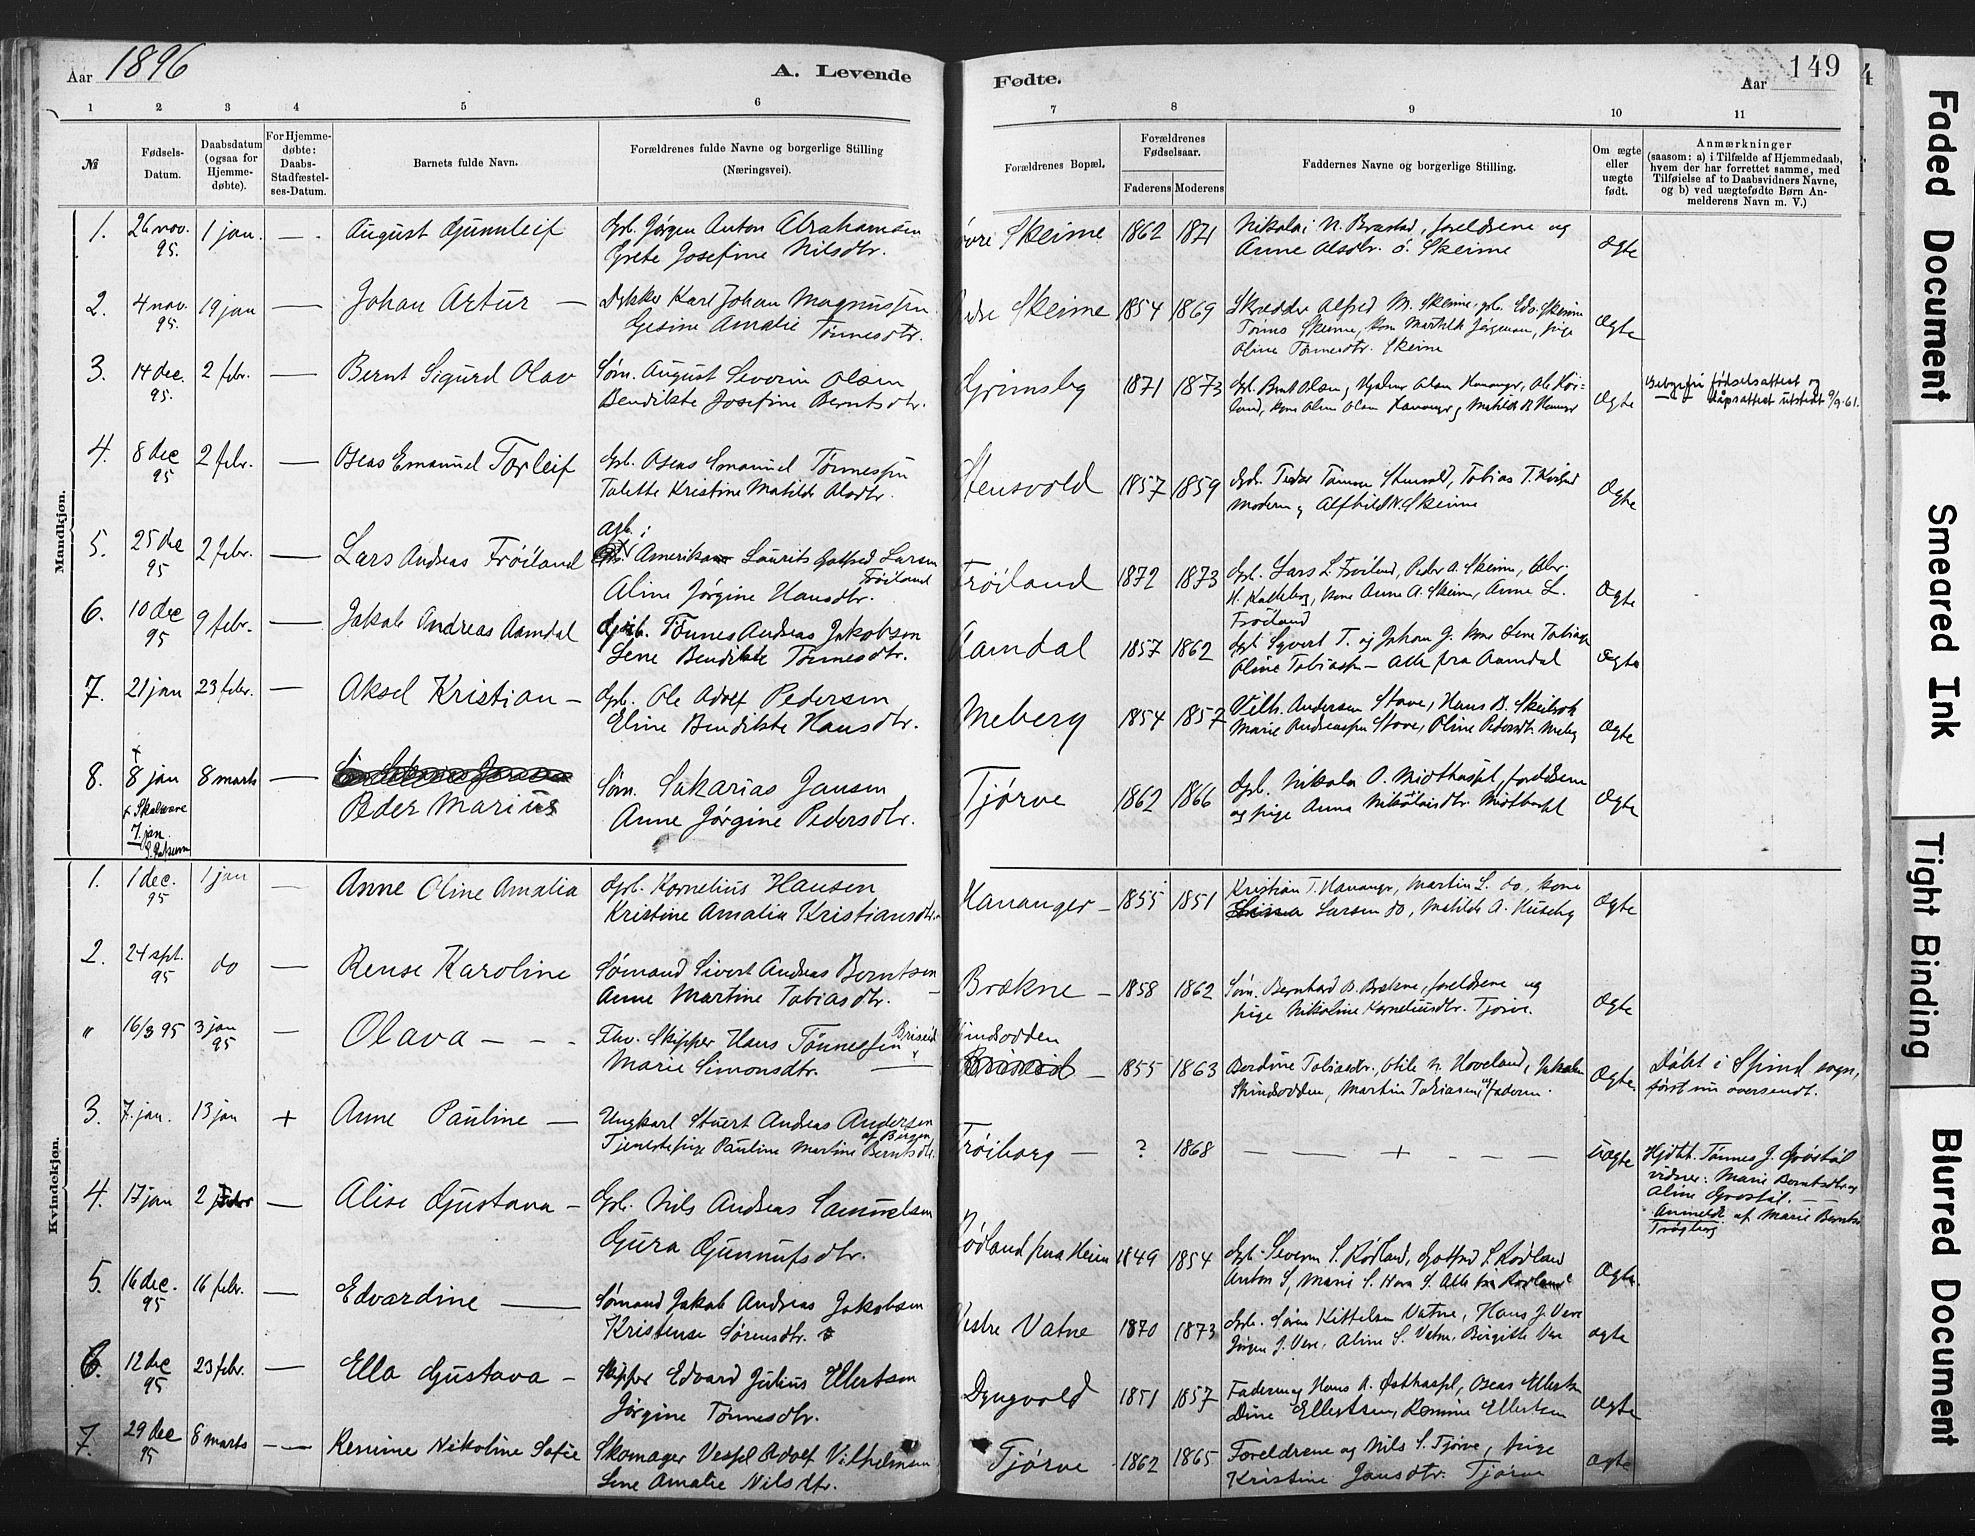 Aar 1896
A. Levende
Fødte.
Aar
149
4
1 2 3 4 5 6 7 8 9 10 11
№
Fødsels-
Datum.
Daabsdatum
(ogsaa for
Hjemme-
døbte).
For Hjemme-
døbte:
Daabs-
Stadfæstel-
ses-Datum.
Barnets fulde Navn.
Forældrenes fulde Navne og borgerlige Stilling
(Næringsvei).
Forældrenes Bopæl.
Forældrenes
Fødselsaar.
Faderens Moderens
Faddernes Navne og borgerlige Stilling.
Om ægte
eller
uægte
født.
Anmærkninger
(saasom: a) i Tilfælde af Hjemmedaab,
hvem der har forrettet samme, med
Tilføielse af to Daabsvidners Navne,
og b) ved uægtefødte Børn An-
melderens Navn m. V.)
Mandkjøn.
1. 26 nov. 95. 1 jan. — August Gunnleif
Gbr. Jørgen Anton Abrahamsen
Grete Josefine Nilsdtr.
Skeime 1862 1871
Nikolai N. Brastad, foreldrene og
Anne Olsdtr. ö. Skeime
ægte
2. 4 nov. 95. 19 jan — Johan Artur —
Dykker Karl Johan Magnussen
Gesine Amalie Tønnesdtr.
Skeime 1854 1869
Skrædder Alfred M. Skeime, gbr. Edv. Skeime
Tønnes Skeime, kone Martilde Jørgensen, pige
Oline Tønnesdtr. Skeime
Ægte
3. 14 dec. 95. 2 febr. — Bernt Sigurd Olav
Søm. August Severin Olsen
Bendikte Josefine Berntsdtr.
Grimsby 1871 1873
Ægte
Gebyrfri fødselsattest og
dåpsattest utstedt 9/9-61.
4. 8 dec 95 2 febr. — Oseas Emanuel Torleif
Gbr. Oseas Emanuel Tønnessen
Talette Kristine Matilde Olsdtr.
Stensvold 1857 1859
moderen og Alfhild N. Skeime
Ægte
5. 25 dec 95 2 febr. — Lars Andreas Frøiland
Amerika Laurits Gotfred Larsen
Frøiland
Aline Jørgine Hansdtr.
Frøiland 1872 1873
Gbr. Lars L. Frøiland, Peder A. Skeime, Abr.
H. Kalleberg, kone Anne A. Skeime, Anne L.
Frøiland
Ægte
6. 10 dec 95 9 febr. — Jakob Andreas Aamdal
Tønnes Andreas Jakobsen
Lene Bendikte Tønnesdtr.
Aamdal 1857 1862
Gbr. Syvert T. og Johan J. kone Lene Tobias
Oline Tobiasen — Alle fra Aamdal
Ægte
7. 21 jan 23 febr. — Aksel Kristian —
Gbr. Ole Adolf Pedersen
Eline Bendikte Hansdtr.
Meberg 1854 1857
Vilh. Andersen Stave, Hans B.
Marie Andreassen Stave, Oline Pedersdtr. Meberg
Ægte
8. 8 jan 8 marts — Peder Marius
x Skal være
7 jan.
Søm. Sakarias Jansen
Anne Jørgine Pedersdtr.
Tjørve 1862 1866
Gbr. Nikolai O. Midthassel, foreldrene
og pige Anna Nikolaisdtr. Midthassel
Ægte
Kvindekjøn.
1. 1 dec. 95 1 jan — Anne Oline Amalia
Gbr. Kornelius Hansen
Kristine Amalia Kristiansdtr.
Hananger — 1855 1851
Kristian T. Hananger, Martin L. do, kone
Larsen do, Matilde A. Huseby
Ægte
2. 24 sept. 95 do — Rense Karoline
Sømand Sivert Andreas Berntsen
Anne Martine Tobiasdtr. —
Brækne — 1858 1862
Søm. Bernhard B. Brækne, foreldrene og
pige Nikoline Korneliusdtr. Tjørve.
Ægte
" 16/3 95 3 jan 95 — Olava — — -
Fhv. Skipper Hans Tønnessen Briseid
Marie Simonsdtr. —
1855 1863
Berdine Tobiasdtr., Otilie N. Hoveland, Jakob
Martin Tobiasen, faderen.
Ægte
Døbt i Spind sogn,
først nu oversendt.
3. 7. jan. 13 jan + Anne Pauline —
Ungkarl Stuert Andreas Andersen
af Bergen
Tjenestepige Pauline Martine Berntsdtr.
Frøiborg — ? 1868
— — + — — —
uægte
Hjdbt. Tønnes J. Grøstøl
vidner: Marie Berntsdtr. og
Aline Grøstøl. — —
Anmeldt af Marie Berntsd
Frøyborg
4. 17 jan 2 febr — Alise Gustava —
Gbr. Nils Andreas Samuelsen
Gura Gunnufsdtr.
Rødland paa Heien 1849 1854
Gbr. Severin S. Rødland, Gotfred S. Rødland
Anton S, Marie S. Alle fra Rødland
Ægte.
5. 16 dec. 95 16 febr. — Edvardine —
Sømand Jakob Andreas Jakobsen
Kristense Sørensdtr.
Vestre Vatne 1870 1873
Gbr. Søren Kittelsen Vatne, Hans J. Vere
Jørgen J. Vere, Aline S. Vatne, Birgitte Vere
ægte
6. 12 dec 95 23 febr. — Ella Gustava —
Skipper Edvard Julius Ellertsen
Jørgine Tønnesdtr.
Dyngvold 1851 1857
Faderen og Hans A. Østhassel, Oseas Ellertsen
Dine Ellertsen, Remine Ellertsen
Ægte
7. 29 dec 95 8 marts — Remine Nikoline Sofie
Skomager Vespl Adolf Vilhelmsen
Lene Amalie Nilsdtr.
Tjørve 1862 1865
Foreldrene og Nils S. Tjørve, pige
Kristine Jansdtr. Tjørve
ægte
Faded Document
Smeared Ink
Tight Binding
Blurred Document